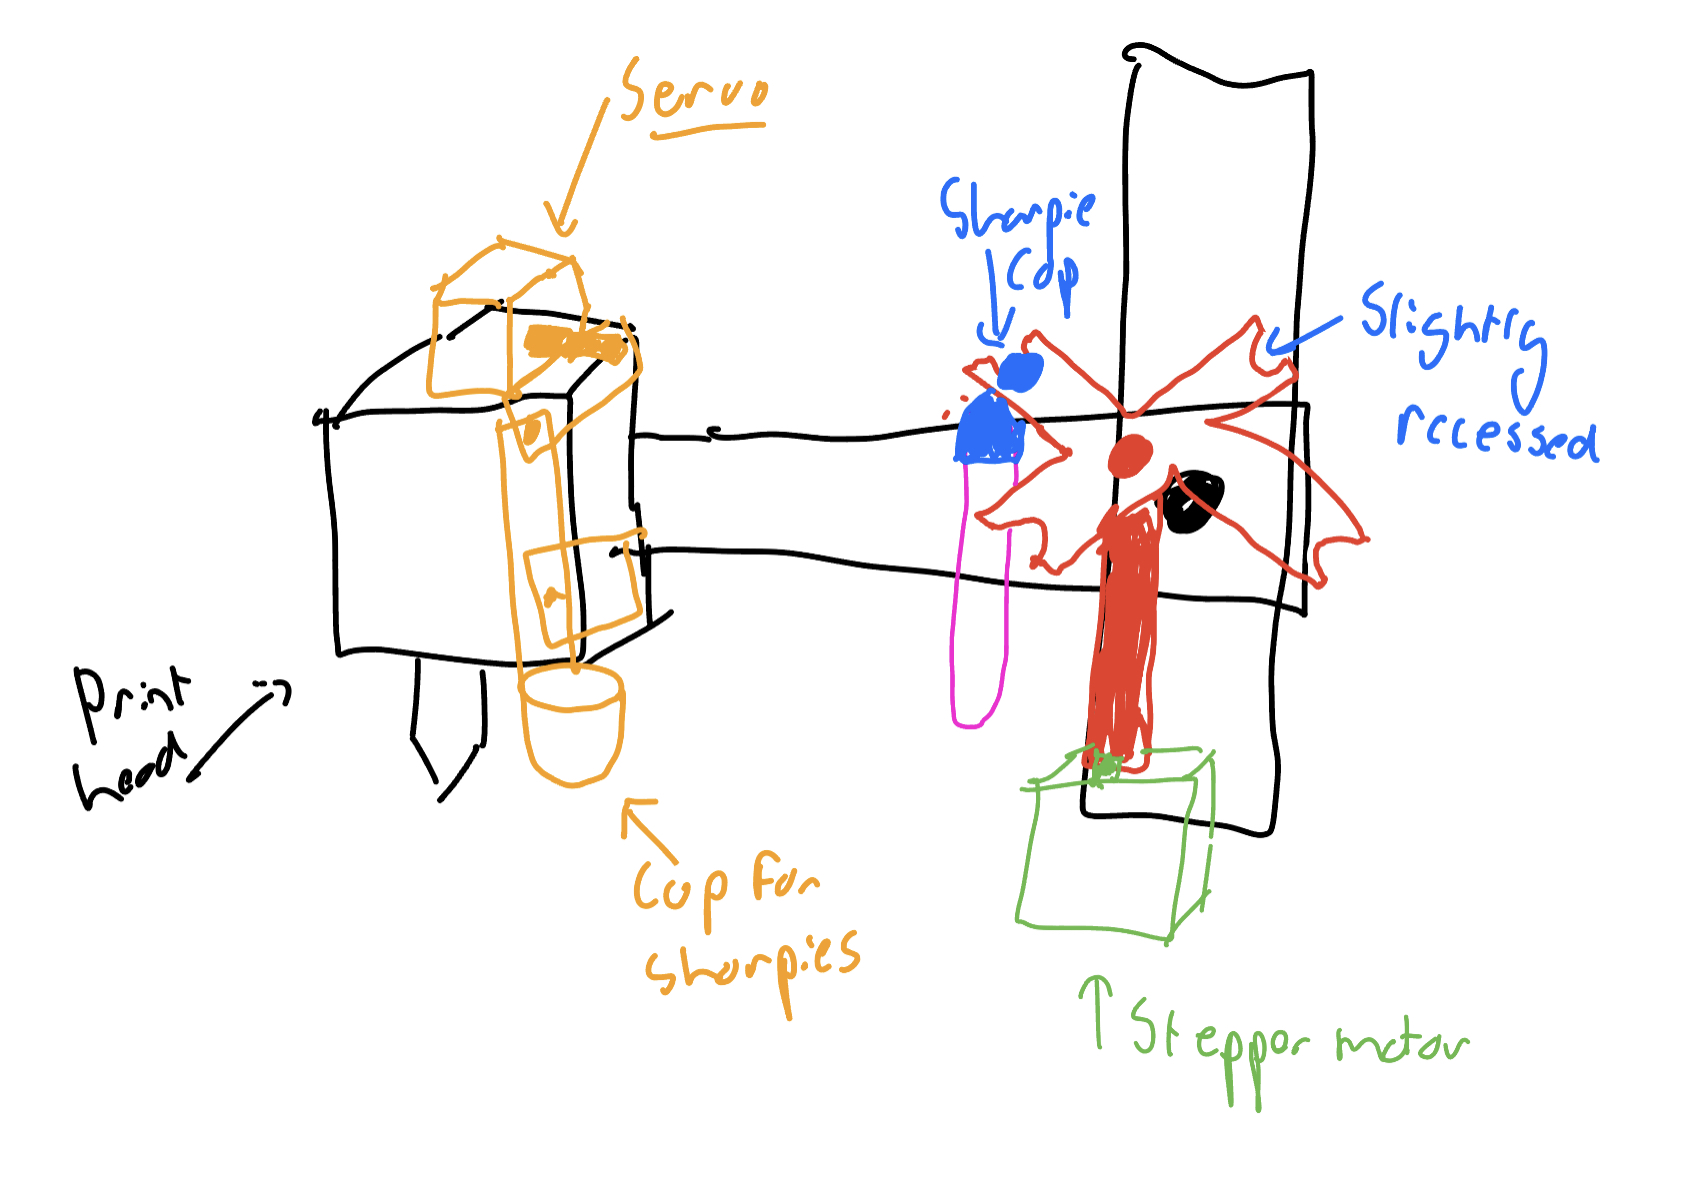 Servo
Sharpie
Cap
Slightly
rccessed
Print
head
Cup for
sharpies
Steppor motor